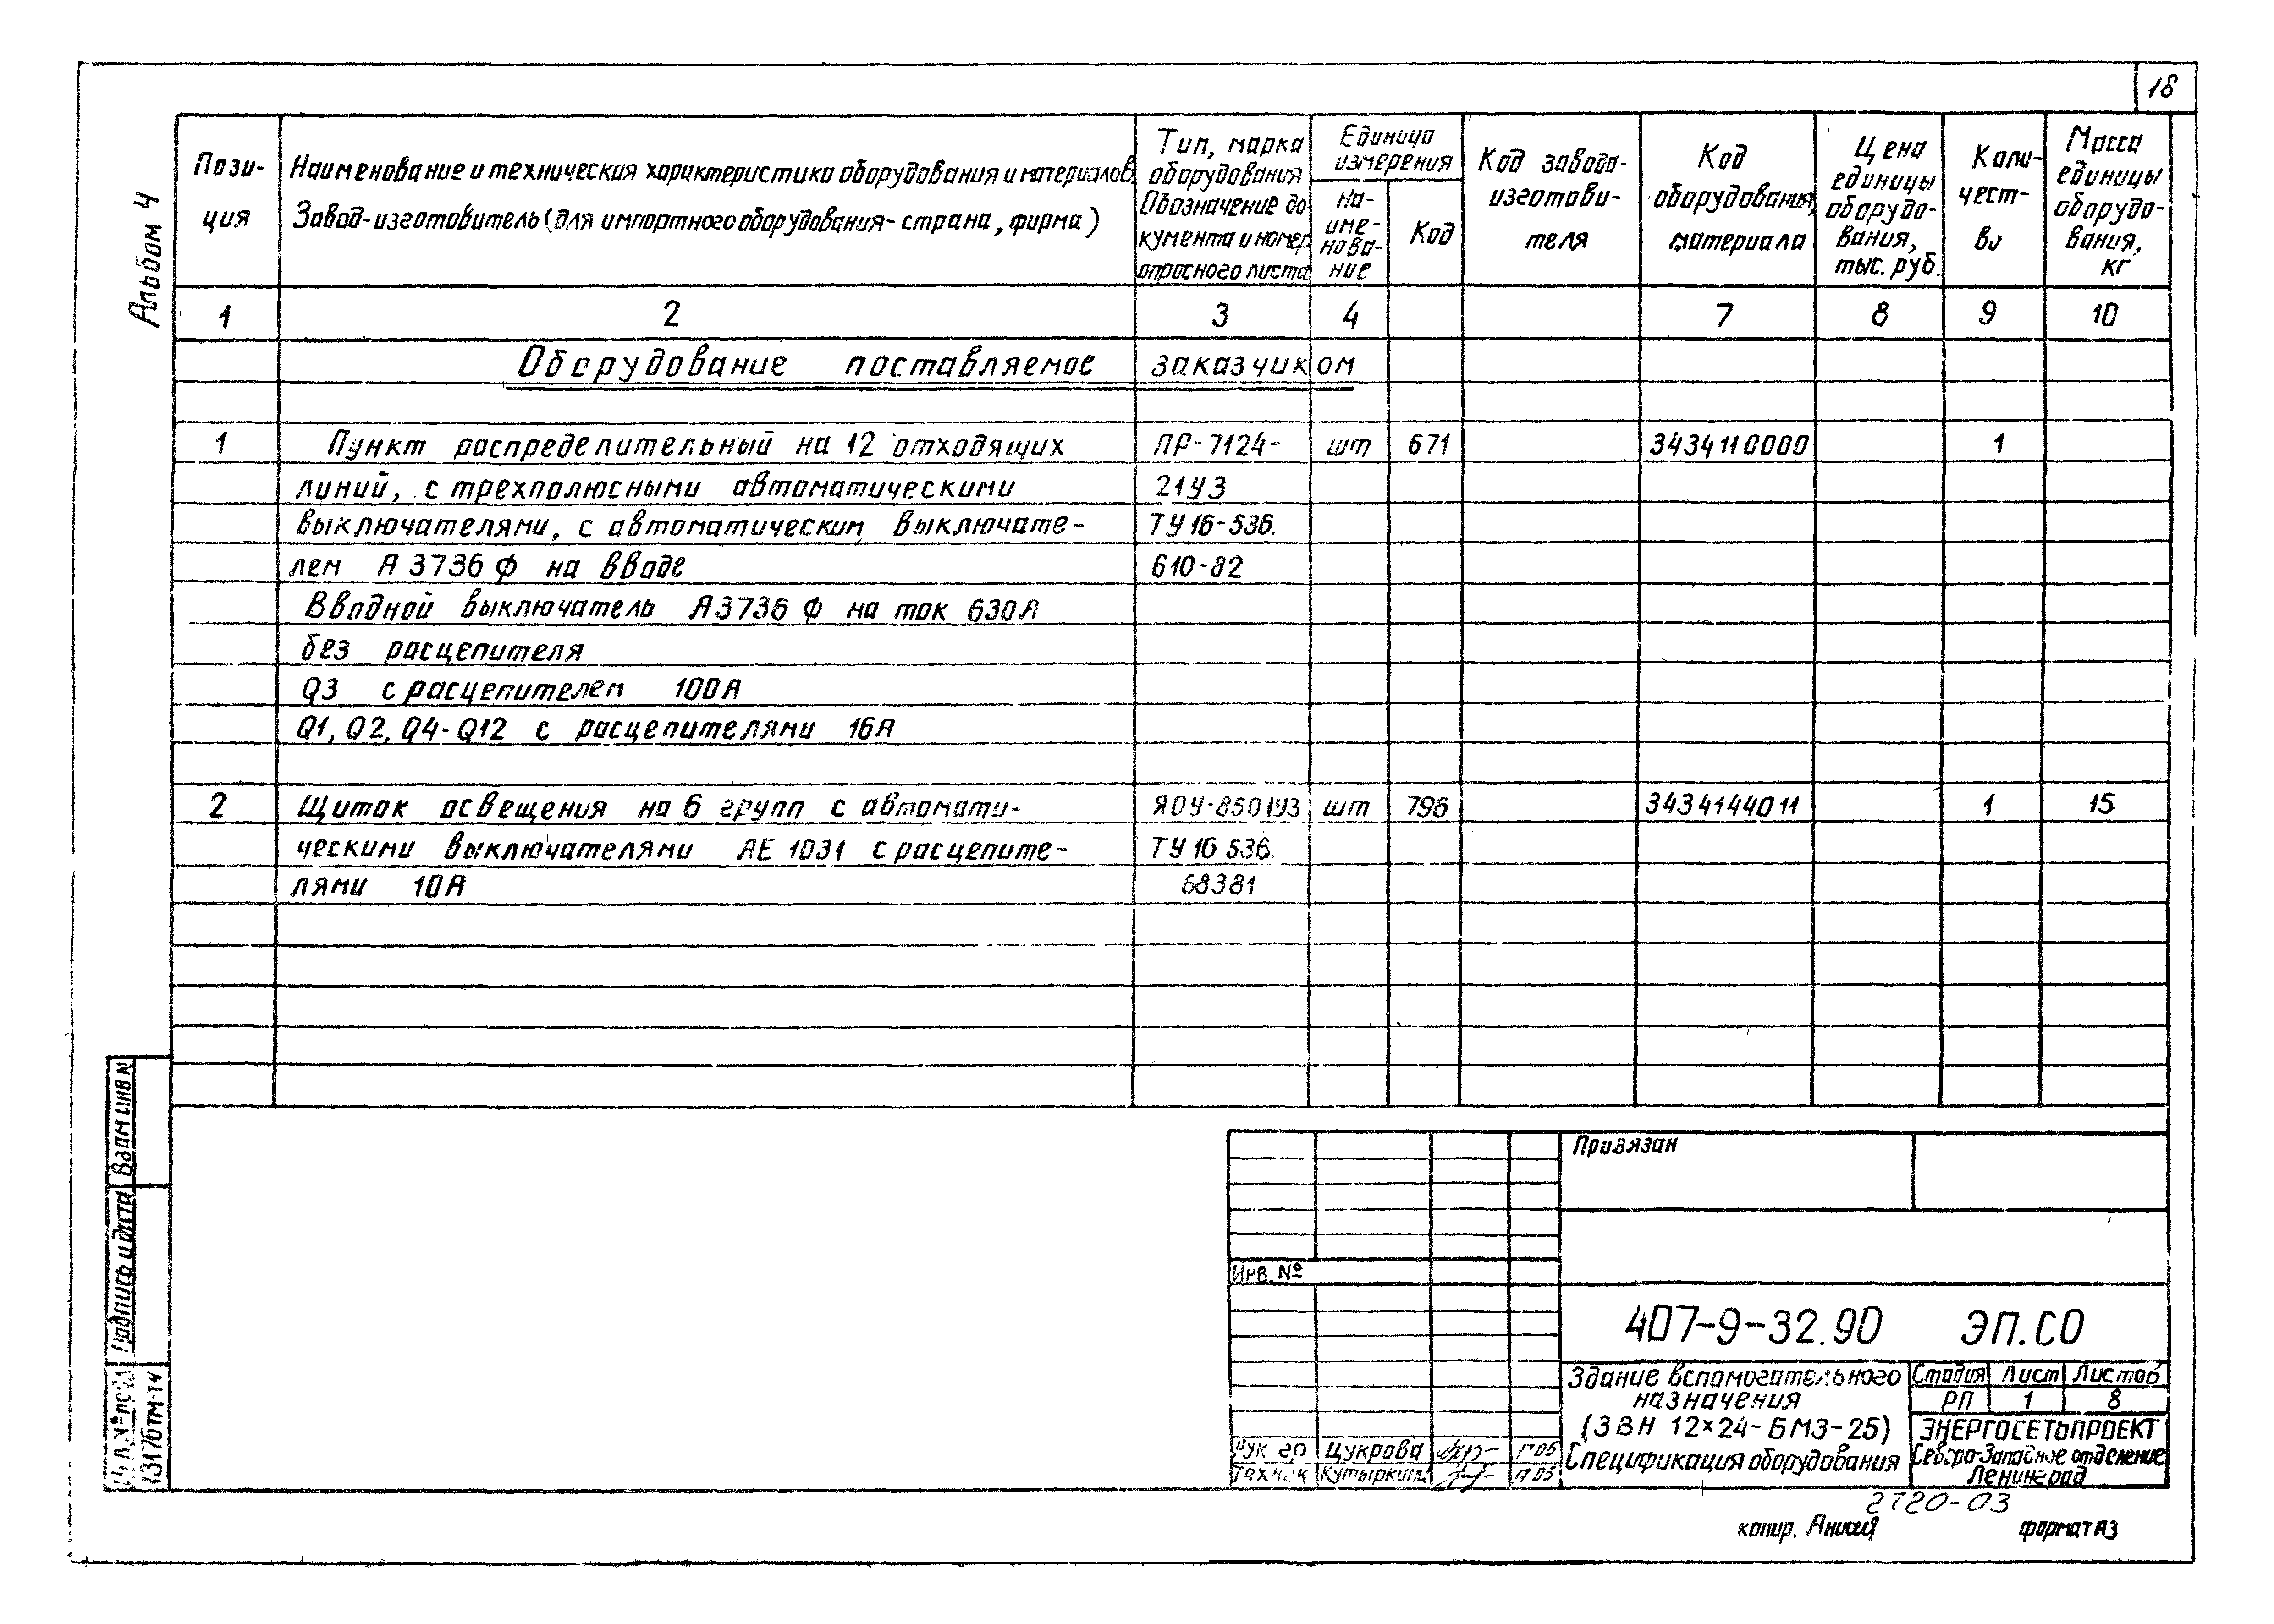 18
Альбом 4
Пози-
ция
Наименование и техническая характеристика оборудования и материалов.
Завод-изготовитель (для импортного оборудования - страна, фирма)
Тип, марка
оборудования
Обозначение до-
кумента и номер
опросного листа
Единица
измерения
На-
име-
нова-
ние
Код
Код завода-
изготови-
теля
Код
оборудования,
материала
Цена
единицы
оборудо-
вания,
тыс. руб.
Коли-
чест-
во
Масса
единицы
оборудо-
вания,
кг
1 2 3 4 7 8 9 10
Оборудование поставляемое заказчиком
1 Пункт распределительный на 12 отходящих ПР-7124- шт 671 3434110000 1
линий, с трехполюсными автоматическими 21У3
выключателями, с автоматическим выключате- ТУ 16-536.
лем А 3736 Ф на вводе 610-82
Вводной выключатель А3736 Ф на ток 630А
без расцепителя
Q3 с расцепителем 100А
Q1, Q2, Q4-Q12 с расцепителями 16А
2 Щиток освещения на 6 групп с автомати- ЯОУ-8501У3 шт 796 3434144011 1 15
ческими выключателями АЕ 1031 с расцепите- ТУ 16 536.
лями 10А 68381
Взам инв №
Подпись и дата
Инв. № подл
13176ТМ-Т4
Привязан
Инв. №
407-9-32.90 ЭП.СО
Здание вспомогательного
назначения
(ЗВН 12×24-БМЗ-25)
Спецификация оборудования
Стадия Лист Листов
РП 1 8
ЭНЕРГОСЕТЬПРОЕКТ
Северо-Западное отделение
Ленинград
Рук гр Цукрова
Техник
2720-03
копир.
формат А3